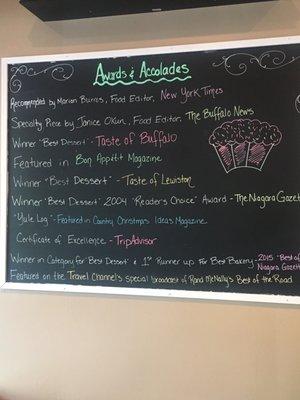 Awards & Accolades
Recommended by Marian Burros, Food Editor, New York Times
Specialty Piece by Janice Okun, Food Editor, The Buffalo News
Winner "Best Dessert" - Taste of Buffalo
Featured in Bon Appitit Magazine
Winner "Best Dessert" - Taste of Lewiston
Winner "Best Dessert" 2004 "Readers Choice" Award - The Niagara Gazet
"Yule Log" - Featured in Country Christmas Ideas Magazine
Certificate of Excellence - TripAdvisor
Winner in Category for Best Dessert & 1st Runner up For Best Bakery - 2015 "Best of
Niagara Gazett
Featured on the Travel Channel's special broadcast of Rand McNally's Best of the Road